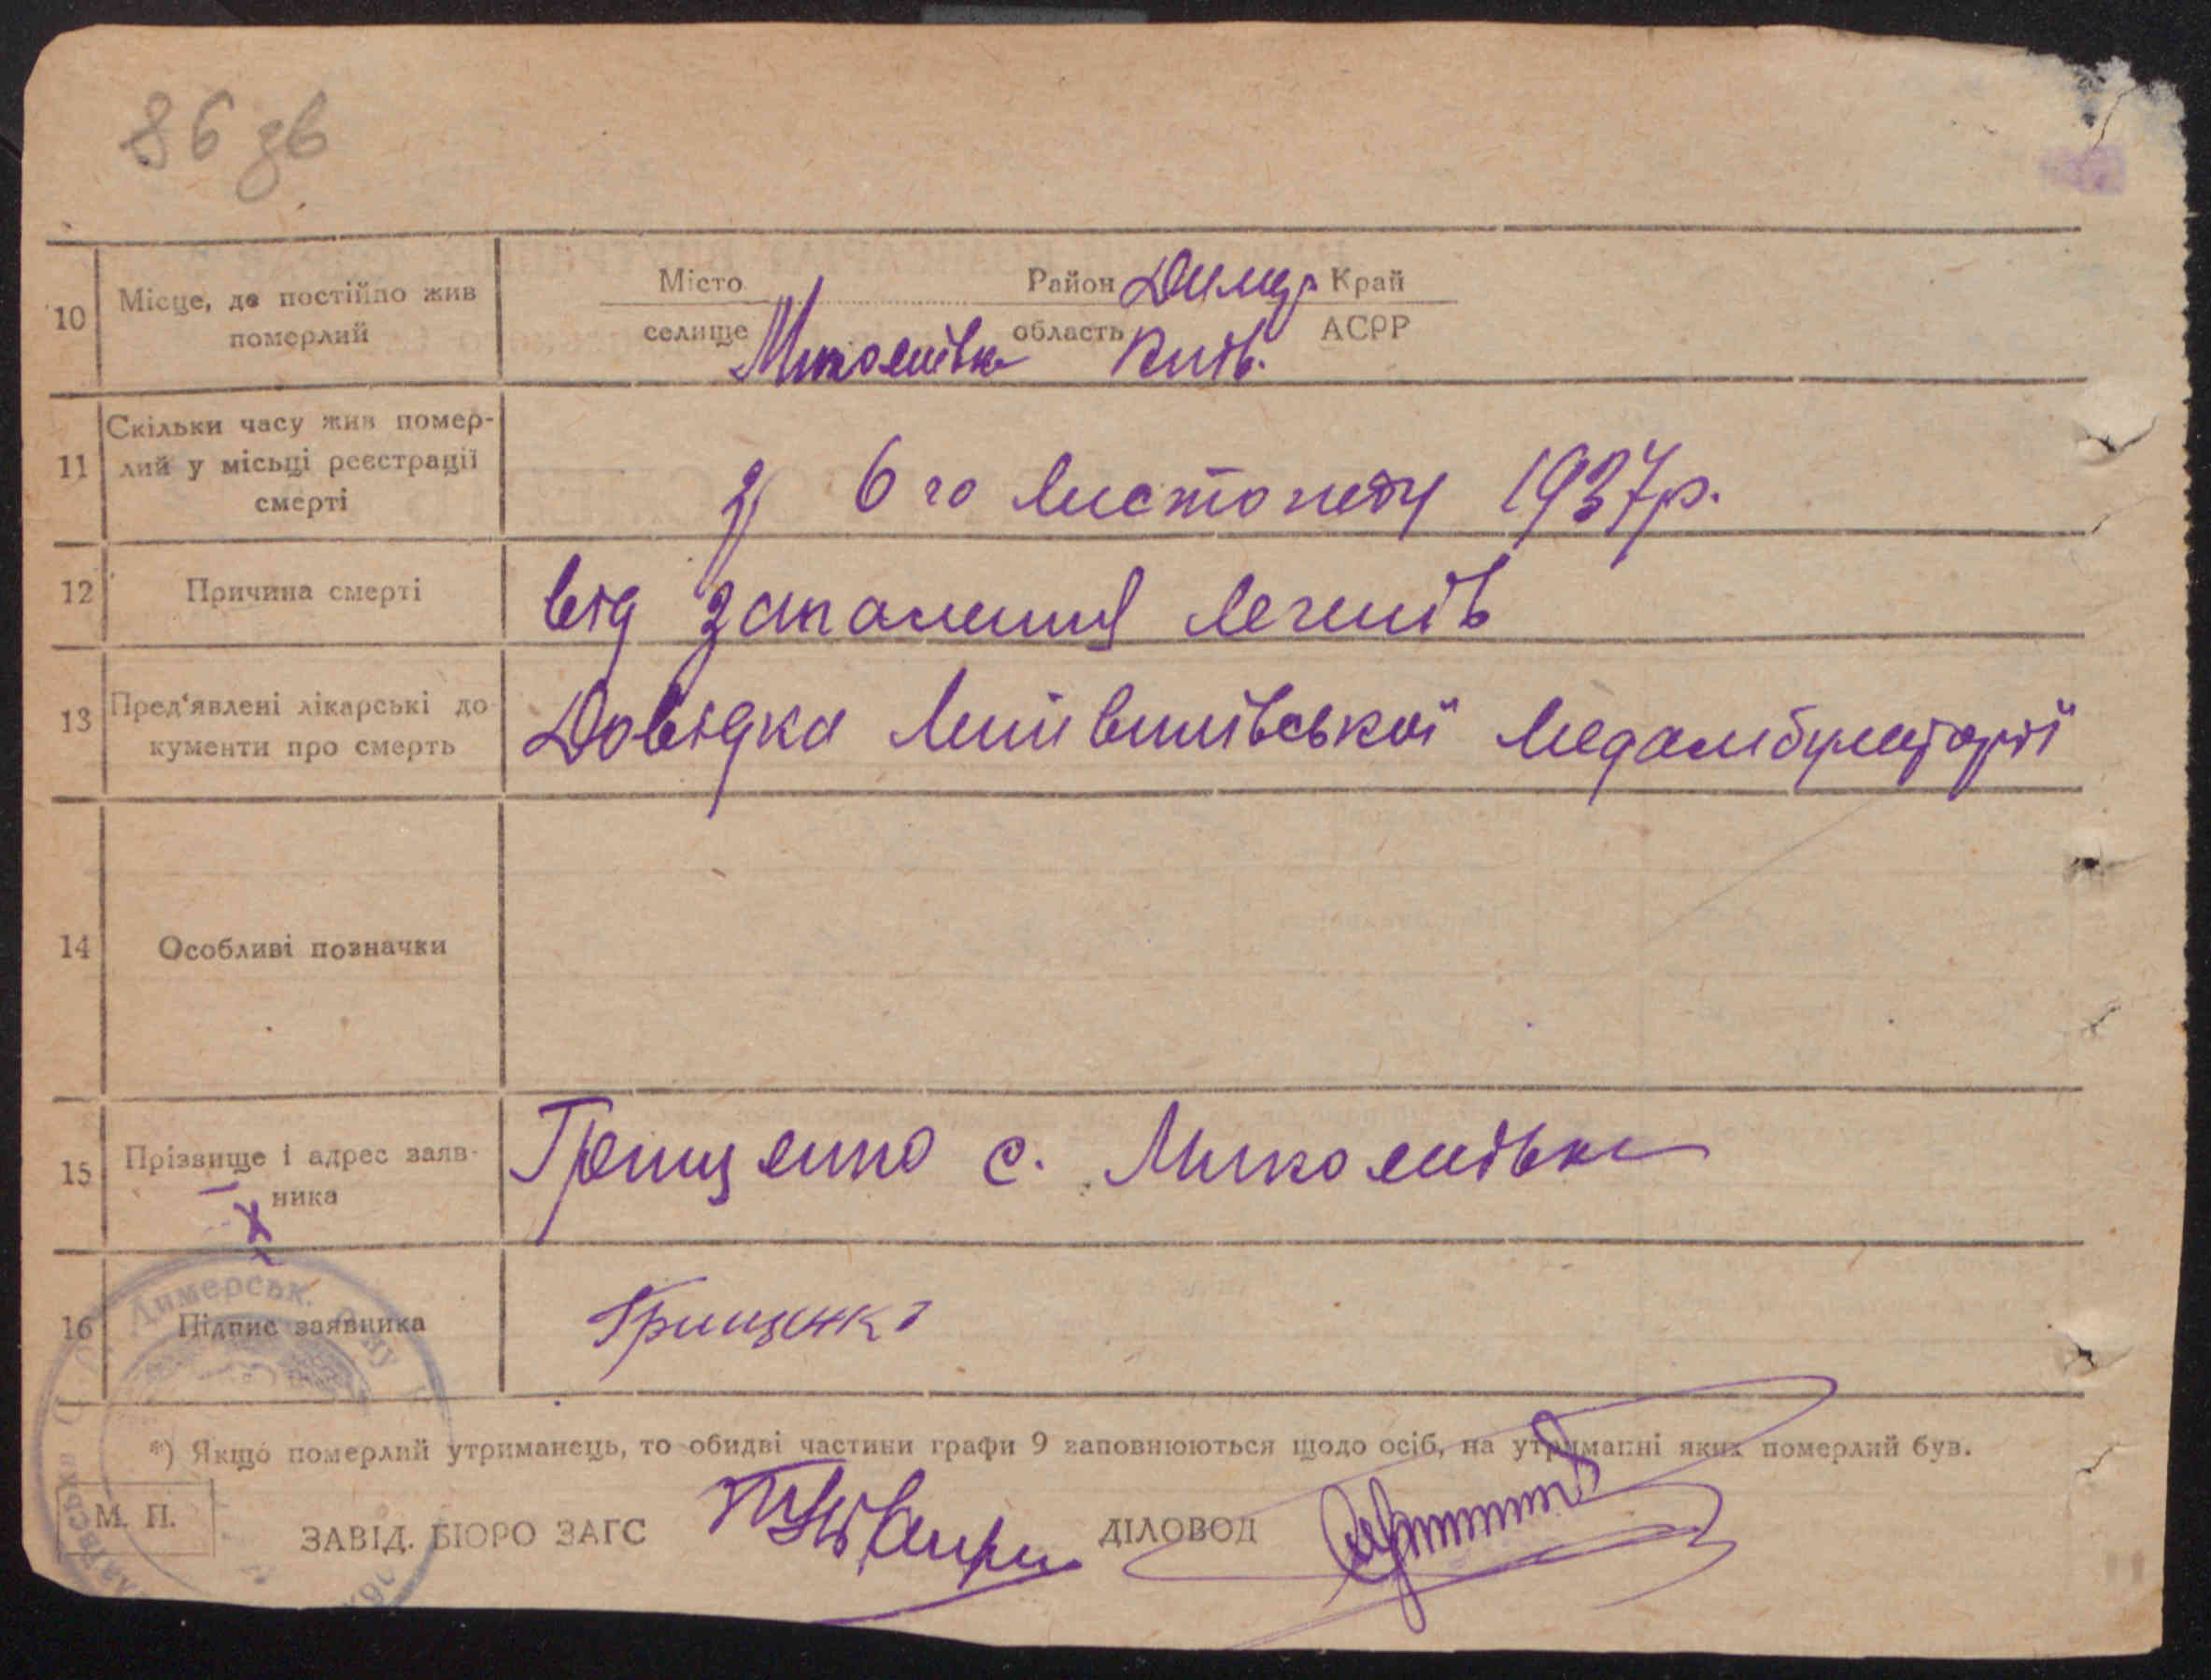 86 зв
10 Місце, де постійно жив померлий
Місто Район Димер Край
селище Миколаївка область Київ. АСРР
11 Скільки часу жив помер-
лий у місьці реєстрації
смерті
з 6 го листопаду 1937р.
12 Причина смерті від запалення легенів
13 Пред'явлені лікарські до
кументи про смерть
Довідка медамбулаторії
14 Особливі позначки
15 Прізвище і адрес заяв-
ника
Грищенко с. Миколаївка
16 Підпис заявника Грищенко
Димерськ.
*) Якщо померлий утриманець, то обидві частини графи 9 заповнюються щодо осіб, на утриманні яких померлий був.
М. П. ЗАВІД. БЮРО ЗАГС ДІЛОВОД